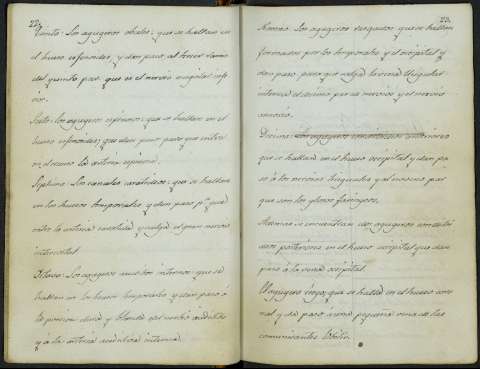 22,
Quinto: Los agugeros obales: que se hallan en
el hueso esfenoides, y dan paso, al tercer ramo
del quinto par, que es el nervio maxilar infe-
rior.
Sesto: los agugeros espinosos: que se hallan en el
hueso esfenoides; que dan paso para que entre
en el craneo la arteria espinosa.
Septimo: Los canales carotideos: que se hallan
en los huesos temporales y dan paso pª que
entre la arteria carotida y salga el gran nervio
intercostal.
Octavo: Los agugeros auditibos internos: que se
hallan en los huesos temporales y dan paso á
la porcion dura y blanda del nerbio auditibo
y á la arteria auditiba interna.
23,
Noveno: Los agugeros rasgados que se hallan
formados por los temporales y el occipital y
dan paso para que salga la vena Yugular
interna el octavo par de nervios y el nervio
accesorio.
Decimo: Los agugeros condiloideos anteriores
que se hallan en el hueso occipital y dan pa-
so á los nervios linguales y al noveno par
que son los gloso faringeos.
Ademas se encuentran dos agugeros condiloi-
deos posteriores en el hueso occipital que dan
paso á la vena occipital.
El agugero ciego, que se halla en el hueso coro-
nal y da paso á una pequeña vena de las
comunicantes